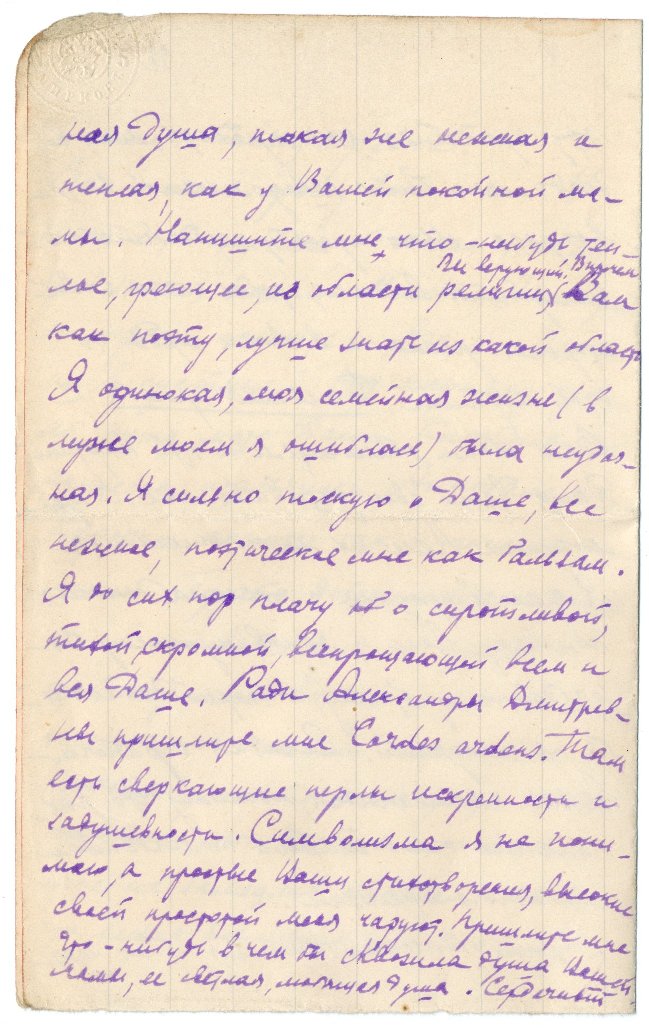 ная душа, такая же нежная и
теплая, как у Вашей покойной ма-
мы. Напишите мне что-нибудь теп-
Вы верующий. Впрочем
лое, греющее, из области религии, Вам
как поэту, лучше знать из какой области
Я одинокая, моя семейная жизнь (в
муже моем я ошиблась) была неудач-
ная. Я сильно тоскую о Даше, все
нежное, поэтическое мне как бальзам.
Я до сих пор плачу о сиротливой,
тихой, скромной, всепрощающей всем и
вся Даше. Ради Александры Дмитрев-
ны пришлите мне Cordes ardens. Там
есть сверкающие перлы искренности и
задушевности. Символизма я не пони-
маю, а простые Ваши стихотворения, высокие
своей простотой меня чаруют. Пришлите мне
что-нибудь в чем бы сквозила душа Вашей
мамы, ее светлая, любящая душа. Сердечный